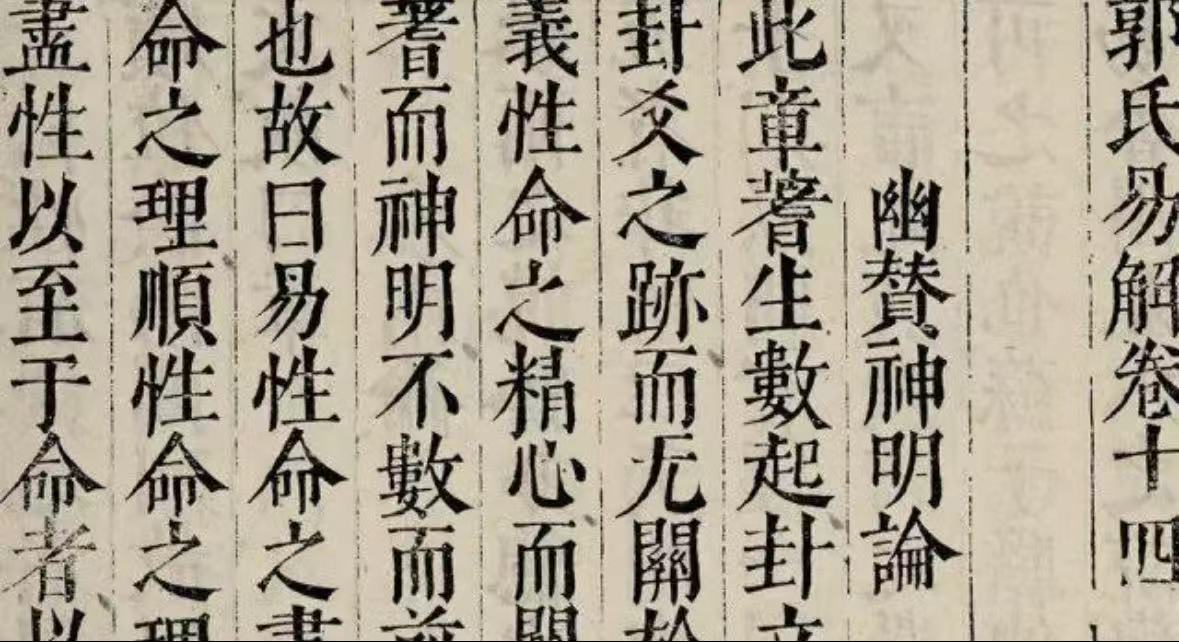 郭氏易解卷十四
幽賛神明論
此章蓍生數起卦立
卦爻之跡而无關於
義性命之精心而關
蓍而神明不數而前
也故曰易性命之書
命之理順性命之理
盡性以至于命者以